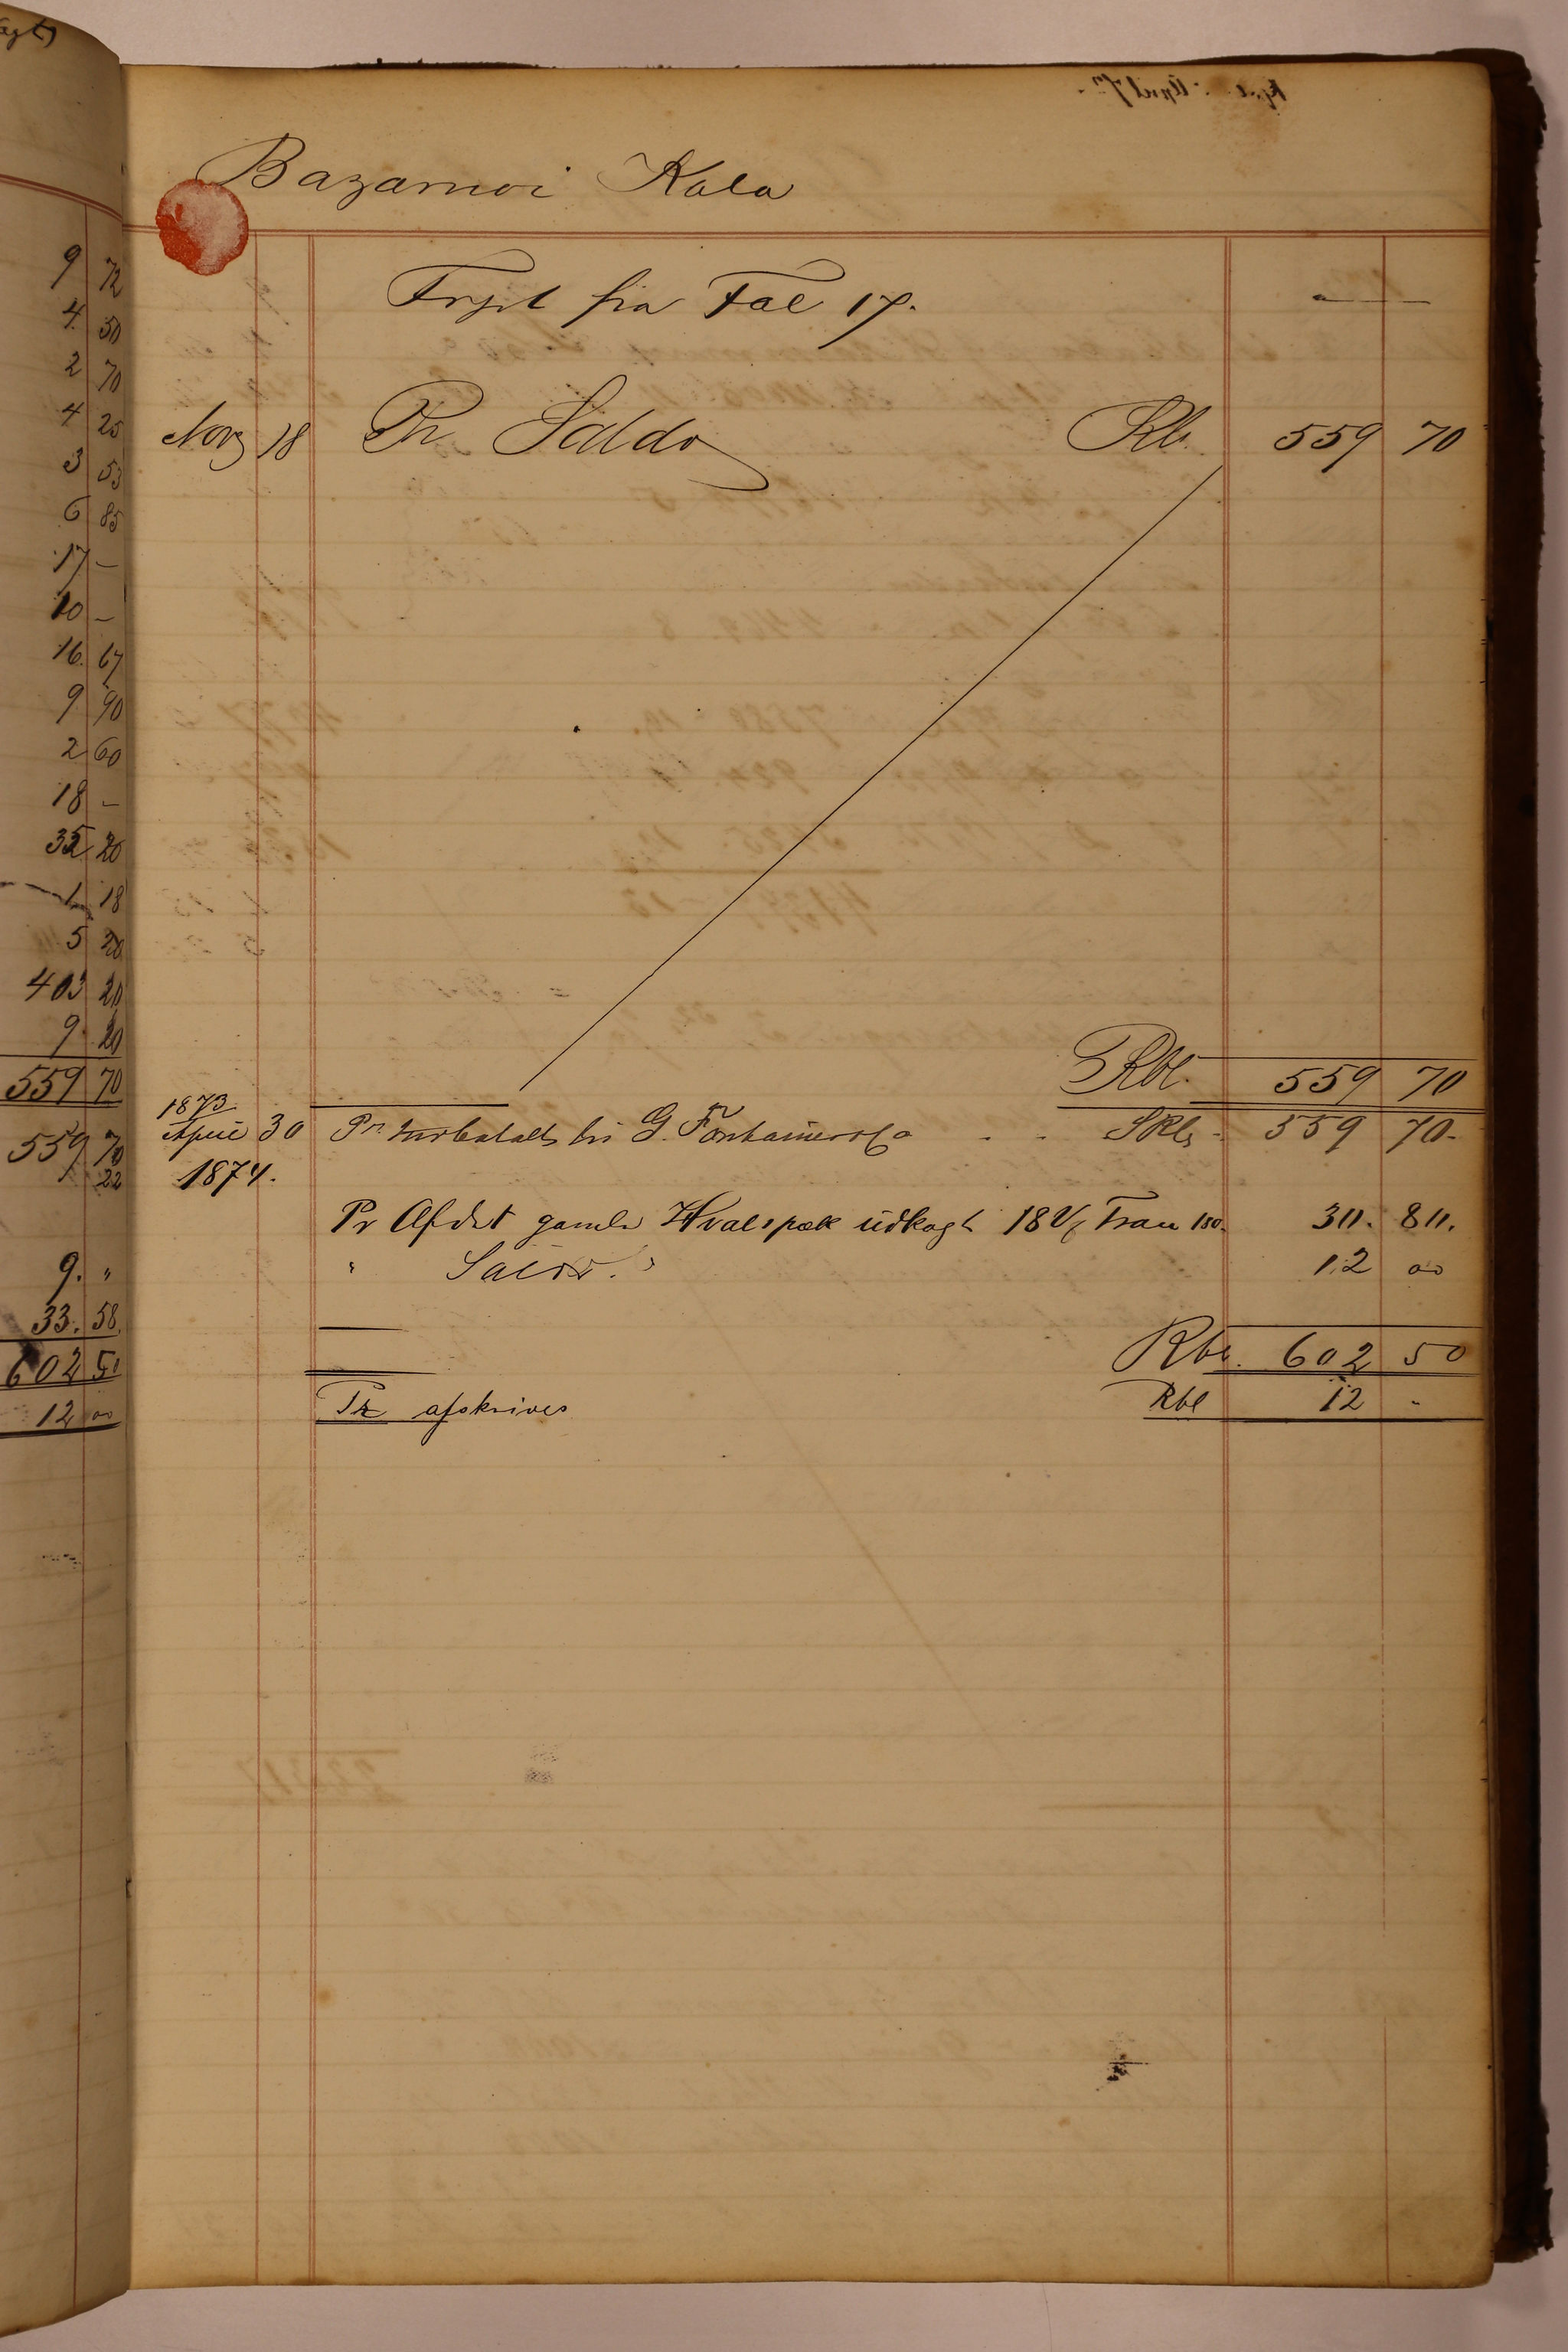 9 72
4 50
2 70
4 25
3 53
6 85
17 –
10 –
16 67
9 90
2 60
18 –
35 20
1 18
5 20
403 20
9 20
559 70
559 70
22
9. "
33. 58.
602 50
12 00
Bazarnoi Kala
Trspt fra Fol 17. —
Novg 18 Pr Saldo Rbl. 559 70
Rbl. 559 70
1873
April 30 Pr indbetalt bei G. & Co - - SRbl - 559 70 -
1874.
Pr Afdrt gamle Hvalspæk udkogt 18 V Tran 180. 30. 80.
" Saldo. " 12 00
Rbl. 602 50
Pr afskrives Rbl 12 -